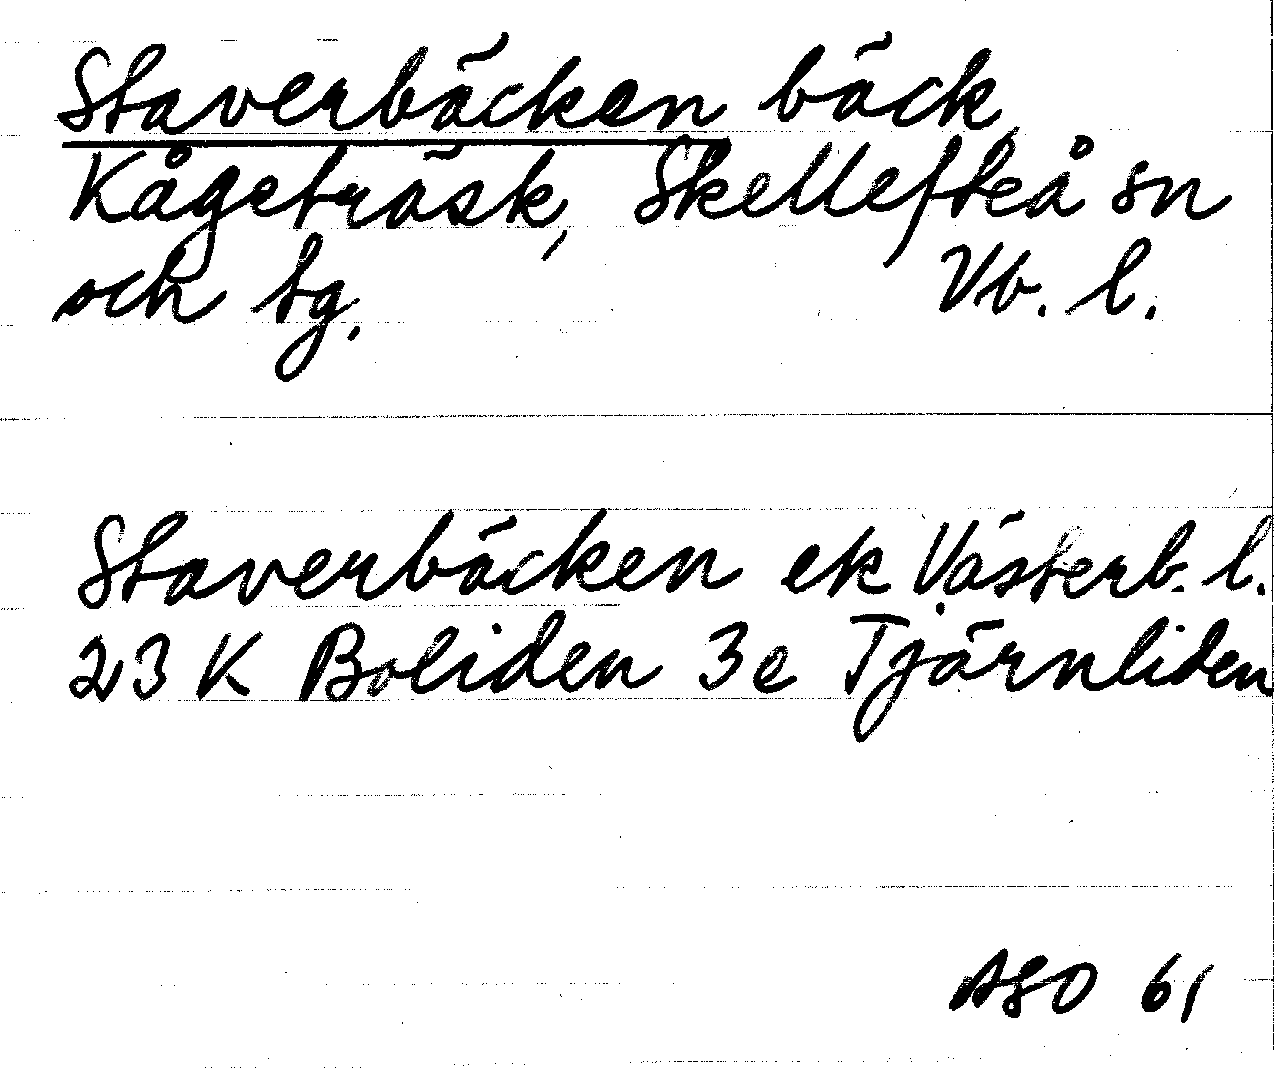 Staverbäcken bäck
Kågeträsk, Skellefteå sn
och tg. Vb. l.
Staverbäcken ek Västerb. l.
23 K Boliden 3e Tjärnliden
ASO 61